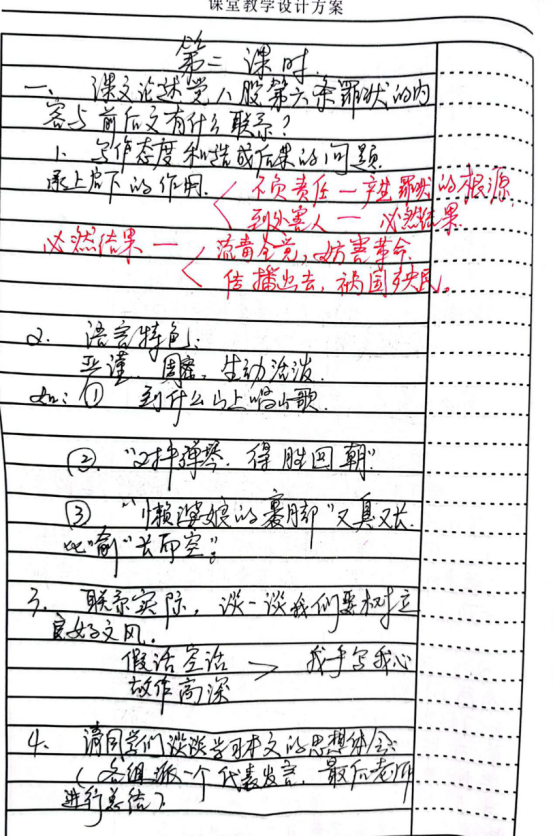 课堂教学设计方案
第二课时
一、课文论述党八股第六条罪状的内
容与前后文有什么联系?
1、写作态度和造成后果的问题
承上启下的作用.
不负责任—产生罪状的根源
到处害人—必然结果
必然结果—流毒全党,妨害革命
传播出去,祸国殃民。
2、语言特色:
严谨、周密、生动活泼.
如:① 到什么山上唱山歌.
②、"对牛弹琴.得胜回朝"
③ "懒婆娘的裹脚"又臭又长.
比喻"长而空"。
3、联系实际,谈一谈我们要树立
良好文风.
假话空话 > 我手写我心
故作高深
4、请同学们谈谈学习本文的思想体会:
(各组派一个代表发言,最后老师
进行总结)